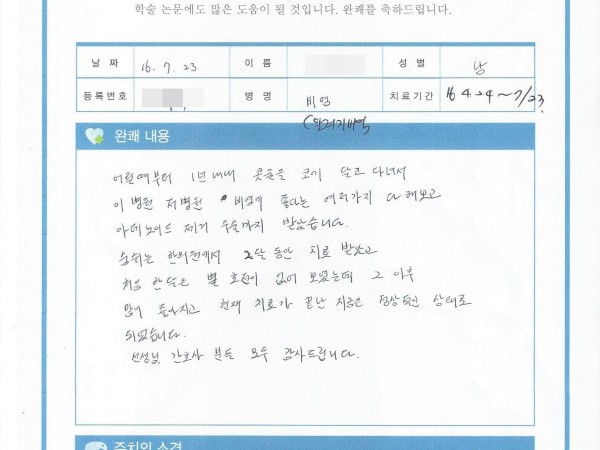 학술 논문에도 많은 도움이 될 것입니다. 완쾌를 축하드립니다.
날 짜 16. 7. 23 이 름 성 별 남
등록번호 병 명 비염 치료기간 16 4. 24 ~ 7/23.
(알러지비염
완쾌 내용
어릴때부터 1년내내 콧물을 코에 달고 다녀서
이 병원 저병원 비염에 좋다는 여러가지 다 해보고
아데노이드 제거 수술까지 받았습니다.
숨쉬는 한의원에서 2달 동안 치료 받았고
처음 한달은 별 호전이 없어 보였는데 그 이후
많이 좋아지고 현재 치료가 끝난 지금은 정상적인 상태로
되었습니다.
선생님, 간호사 분들 모두 감사드립니다.
주치의 소견